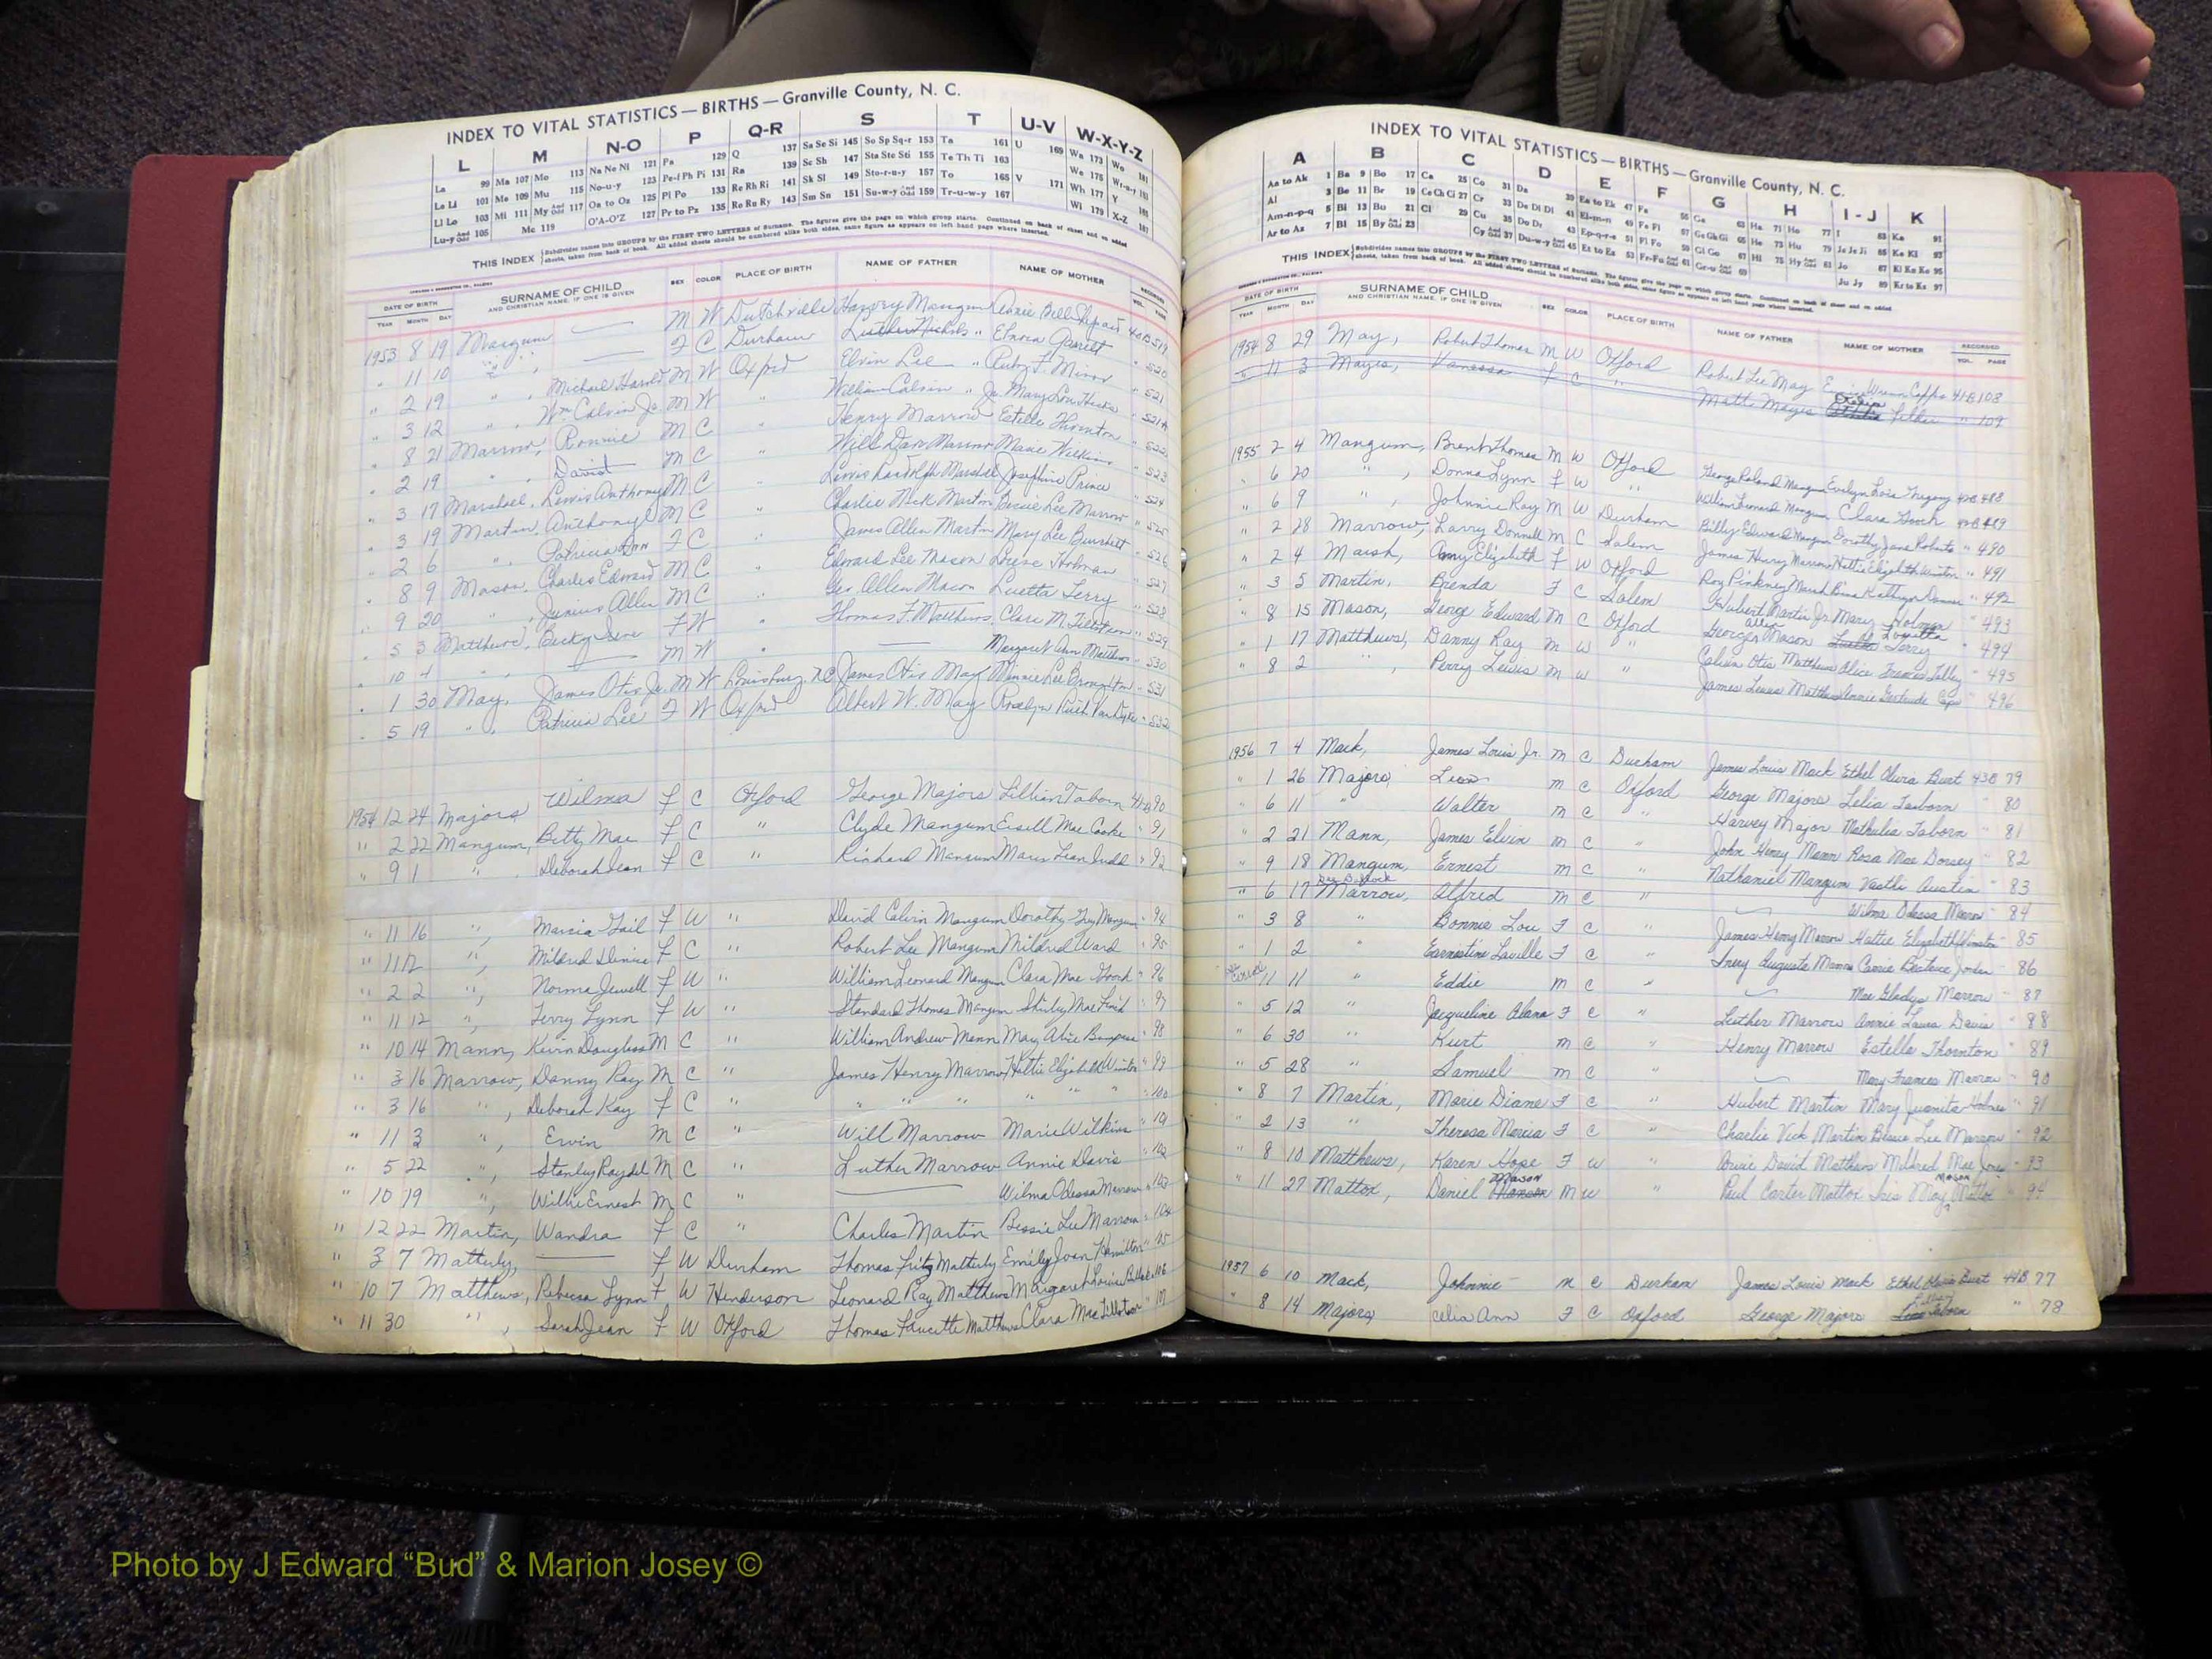 INDEX TO VITAL STATISTICS — BIRTHS — Granville County, N. C.
L M N-O P Q-R S T U-V W-X-Y-Z
La 99 Ma 107 Mo 113 Na Ne Ni 121 Pa 129 Q 137 Sa Se Si 145 So Sp Sq-r 153 Ta 161 U 169 Wa 173 Wo 181
Le Li 101 Me 109 Mu 115 No-u-y 123 Pe-f Ph Pi 131 Ra 139 Sc Sh 147 Sta Ste Sti 155 Te Th Ti 163 We 175 Wr-u-y 183
Ll Lo 103 Mi 111 My And Odd 117 Oa to Oz 125 Pl Po 133 Re Rh Ri 141 Sk Sl 149 Sto-r-u-y 157 To 165 V 171 Wh 177 Y 185
Lu-y And Odd 105 Mc 119 O'A-O'Z 127 Pr to Pz 135 Ro Ru Ry 143 Sm Sn 151 Su-w-y And Odd 159 Tr-u-w-y 167 Wi 179 X-Z 187
THIS INDEX Subdivides names into GROUPS by the FIRST TWO LETTERS of Surname. The figures give the page on which group starts. Continued on back of sheet and on added sheets, taken from back of book. All added sheets should be numbered alike both sides, same figure as appears on left hand page where inserted.
DATE OF BIRTH SURNAME OF CHILD SEX COLOR PLACE OF BIRTH NAME OF FATHER NAME OF MOTHER RECORDED
YEAR MONTH DAY AND CHRISTIAN NAME, IF ONE IS GIVEN VOL. PAGE
1953 8 19 Mangum — M W Dutchville Harvey Mangum 40B 519
" 11 10 " — F C Durham " Elnora Garrett " 520
" 2 19 " , Michael Harold M W Oxford Elvin Lee " Ruby F. Minor " 521
" 3 12 " , Wm Calvin Jr. M W " William Calvin " Jr. Mary Lou Hicks " 521A
" 8 21 Marrow, Ronnie M C " Henry Marrow Estelle Thornton " 522
" 2 19 " , David M C " Will Dave Marrow Marie Wilkins " 523
" 3 17 Marshall, Lewis Anthony M C " Lewis Randolph Marshall Josephine Prince " 524
" 3 19 Martin, Anthony M C " Charlie Vick Martin Bessie Lee Marrow " 525
" 2 6 " , Patricia Ann F C " James Allen Martin Mary Lee Burchett " 526
" 8 9 Mason, Charles Edward M C " Edward Lee Mason Holman " 527
" 9 20 " , Junius Allen M C " Geo. Allen Mason Luetta Terry " 528
" 5 3 Matthews, Becky F W " Thomas F. Matthews Clara M. Tillotson " 529
" 10 4 " , — M W " — Margaret Ann Matthews " 530
" 1 30 May, James Otis Jr. M W Louisburg, N.C. James Otis May Minnie Lee Broughton " 531
" 5 19 " , Patricia Lee F W Oxford Albert W. May Roselyn Ruth VanDyke " 532
1954 12 24 Majors Wilma F C Oxford George Majors Lillian Taborn 41B 90
" 2 22 Mangum, Betty Mae F C " Clyde Mangum Mae Cooke " 91
" 9 1 " , Deborah Jean F C " Richard Mangum Judd " 92
" 11 16 " , Marcia Gail F W " David Calvin Mangum Dorothy Mangum " 94
" 11 12 " , Mildred Denise F C " Robert Lee Mangum Mildred Ward " 95
" 2 2 " , Norma Jewell F W " William Leonard Mangum Clara Mae Gooch " 96
" 11 12 " , Terry Lynn F W " Standard Thomas Mangum Shirley Mae Finch " 97
" 10 14 Mann, Kevin Douglass M C " William Andrew Mann Mary Alice Bumpass " 98
" 3 16 Marrow, Danny Ray M C " James Henry Marrow Hattie Elizabeth Winston " 99
" 3 16 " , Deborah Kay F C " " " " " " " 100
" 11 3 " , Ervin M C " Will Marrow Marie Wilkins " 101
" 5 22 " , Stanley Raydell M C " Luther Marrow Annie Davis " 102
" 10 19 " , Willie Ernest M C " — Wilma Odessa Marrow " 103
" 12 22 Martin, Wandra F C " Charles Martin Bessie Lee Marrow " 104
" 3 7 Matterly, — F W Durham Thomas Fritz Matterly Emily Joan Hamilton " 105
" 10 7 Matthews, Rebecca Lynn F W Henderson Leonard Ray Matthews Margaret Louise " 106
" 11 30 " , Sarah Jean F W Oxford Thomas Faucette Matthews Clara Mae Tillotson " 107
INDEX TO VITAL STATISTICS — BIRTHS — Granville County, N. C.
A B C D E F G H I - J K
Aa to Ak 1 Ba 9 Bo 17 Ca 25 Co 31 Da 39 Ea to Ek 47 Fa 55 Ga 63 Ha 71 Ho 77 I 83 Ka 91
Al 3 Be 11 Br 19 Ce Ch Ci 27 Cr 33 De Di Dl 41 El-m-n 49 Fe Fi 57 Ge Gh Gi 65 He 73 Hu 79 Ja Je Ji 85 Ke Kl 93
Am-n-p-q 5 Bi 13 Bu 21 Cl 29 Cu 35 Do Dr 43 Ep-q-r-s 51 Fl Fo 59 Gl Go 67 Hi 75 Hy And Odd 81 Jo 87 Ki Kn Ko 95
Ar to Az 7 Bl 15 By And Odd 23 Cy And Odd 37 Du-w-y And Odd 45 Et to Ez 53 Fr-Fu And Odd 61 Gr-u And Odd 69 Ju Jy 89 Kr to Kz 97
THIS INDEX Subdivides names into GROUPS by the FIRST TWO LETTERS of Surname. The figures give the page on which group starts. Continued on back of sheet and on added sheets, taken from back of book. All added sheets should be numbered alike both sides, same figure as appears on left hand page where inserted.
DATE OF BIRTH SURNAME OF CHILD SEX COLOR PLACE OF BIRTH NAME OF FATHER NAME OF MOTHER RECORDED
YEAR MONTH DAY AND CHRISTIAN NAME, IF ONE IS GIVEN VOL. PAGE
1954 8 29 May, Robert Thomas M W Oxford Robert Lee May 41B 108
" 11 3 Mayes, Vanessa F C " Matt Mayes " 109
1955 2 4 Mangum, Brent Thomas M W Oxford George Roland Mangum Evelyn Lois Gregory 42B 488
" 6 20 " , Donna Lynn F W " William Leonard Mangum Clara Gooch 42B 489
" 6 9 " , Johnnie Ray M W Durham Billy Edward Mangum Dorothy Jane Roberts " 490
" 2 28 Marrow, Larry Donnell M C Salem James Henry Marrow Hattie Elizabeth Winston " 491
" 2 4 Marsh, Amy Elizabeth F W Oxford Roy Pinkney Marsh Kathryn " 492
" 3 5 Martin, Brenda F C Salem Hubert Martin Jr. Mary Holman " 493
" 8 15 Mason, George Edward M C Oxford George Allen Mason Louetta Terry " 494
" 1 17 Matthews, Danny Ray M W " Calvin Otis Matthews Alice Frances Tilley " 495
" 8 2 " , Perry Lewis M W " James Lewis Matthews Annie Gertrude " 496
1956 7 4 Mack, James Louis Jr. M C Durham James Louis Mack Ethel Burt 43B 79
" 1 26 Majors, Leon M C Oxford George Majors Lelia Taborn " 80
" 6 11 " Walter M C " Harvey Major Mathulia Taborn " 81
" 2 21 Mann, James Elvin M C " John Henry Mann Rosa Mae Dorsey " 82
" 9 18 Mangum, Ernest M C " Nathaniel Mangum Vasthi Austin " 83
" 6 17 Marrow, Alfred M C " — Wilma Odessa Marrow " 84
" 3 8 " Bonnie Lou F C " James Henry Marrow Hattie Elizabeth Winston " 85
" 1 2 " Earnestine Laville F C " Marrow Carrie Beatrice Jordan " 86
11 11 " Eddie M C " — Mae Gladys Marrow " 87
" 5 12 " Jacqueline Alana F C " Luther Marrow Annie Laura Davis " 88
" 6 30 " Kurt M C " Henry Marrow Estelle Thornton " 89
" 5 28 " Samuel M C " — Mary Frances Marrow " 90
" 8 7 Martin, Marie Diane F C " Hubert Martin Mary Juanita Holman " 91
" 2 13 " Theresa Maria F C " Charlie Vick Martin Bessie Lee Marrow " 92
" 8 10 Matthews, Karen Hope F W " David Matthews Mildred Mae Jones " 93
" 11 27 Mattox, Daniel Mason M W " Paul Carter Mattox Iris May Mason Mattox " 94
1957 6 10 Mack, Johnnie M C Durham James Louis Mack Ethel Burt 44B 77
" 8 14 Majors, Celia Ann F C Oxford George Majors Taborn " 78
Photo by J Edward “Bud” & Marion Josey ©